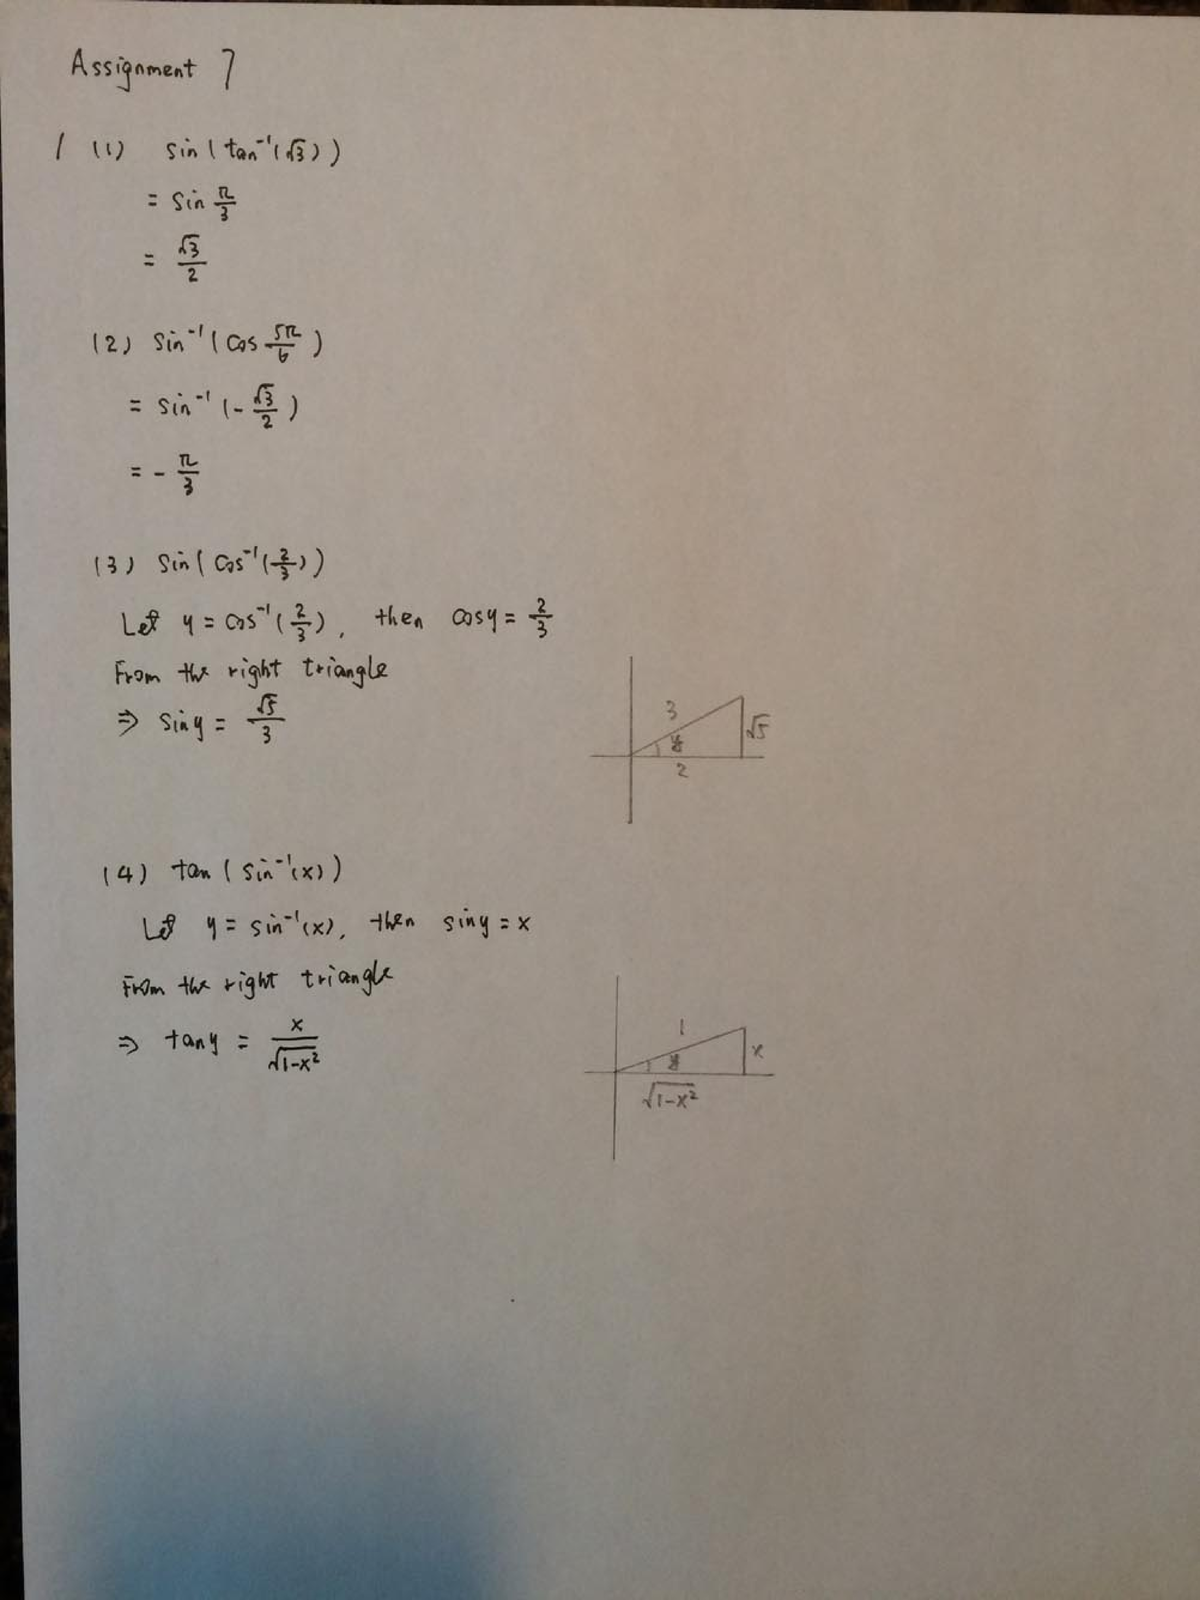 Assignment 7
1 (1) sin(tan⁻¹(√3))
= sin π/3
= √3/2
(2) sin⁻¹(cos 5π/6)
= sin⁻¹(-√3/2)
= -π/3
(3) sin(cos⁻¹(2/3))
Let y = cos⁻¹(2/3), then cosy = 2/3
From the right triangle
⇒ siny = √5/3
3
√5
2
(4) tan(sin⁻¹(x))
Let y = sin⁻¹(x), then siny = x
From the right triangle
⇒ tany = x/√(1-x²)
1
x
√(1-x²)